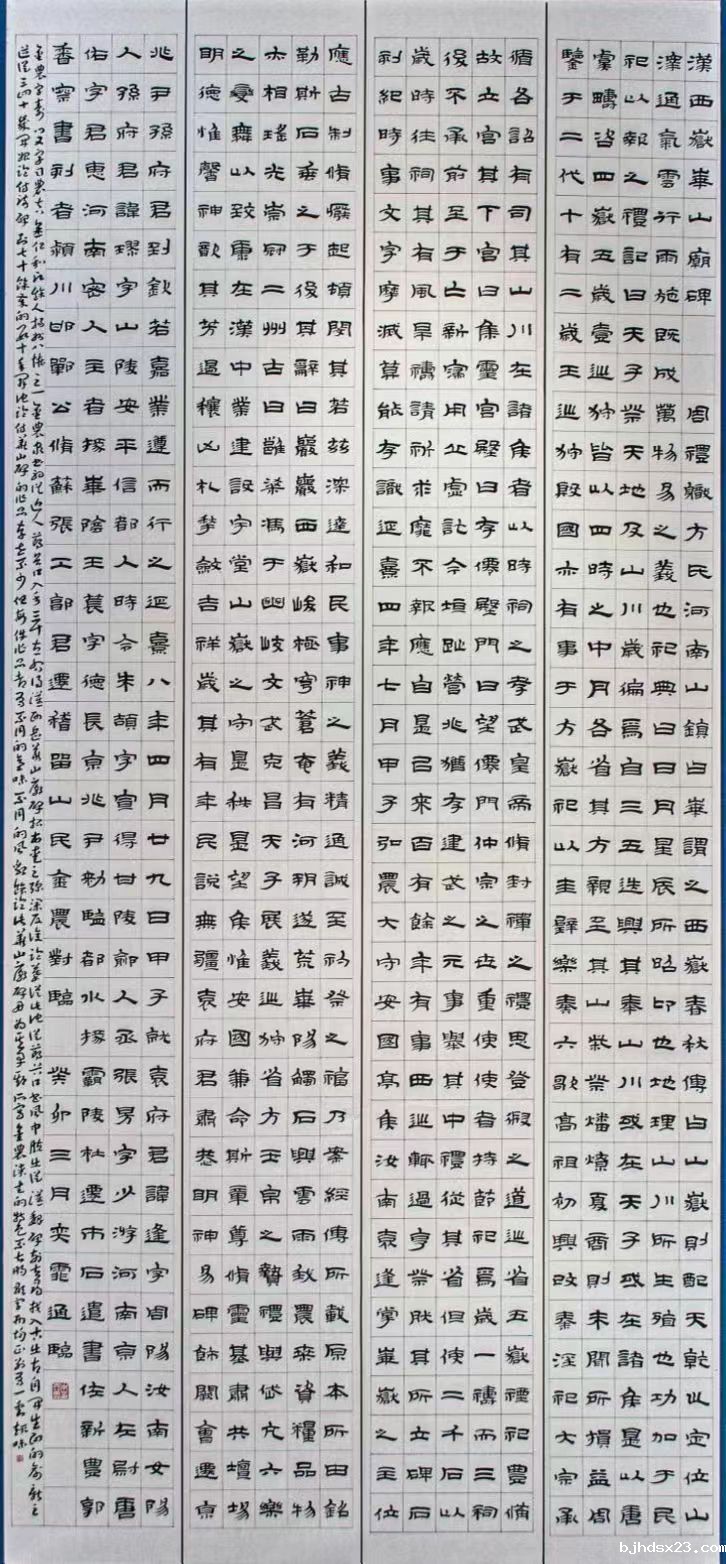 漢西嶽華山廟碑 周禮職方氏河南山鎮曰華謂之西嶽春秋傳曰山嶽則配天乾以定位山
澤通氣雲行雨施既成萬物易之義也祀典曰日月星辰所昭卬也地理山川所生殖也功加于民
祀以報之禮記曰天子祭天地及山川歲徧焉自三五迭興其奉山川或在天子或在諸侯是以唐
虞疇咨四嶽五歲壹巡狩皆以四時之中月各省其方親至其山柴祭燔燎夏商則未聞所損益周
鑒于二代十有二歲王巡狩殷國亦有事于方嶽祀以圭璧樂奏六歌高祖初興改秦淫祀大宗承
循各詔有司其山川在諸侯者以時祠之孝武皇帝修封禪之禮思登假之道巡省五嶽禋祀豐備
故立宮其下宮曰集靈宮殿曰存僊殿門曰望僊門仲宗之世重使使者持節祀焉歲一禱而三祠
後不承前至于亡新寖用丘虛訖今垣趾營兆猶存建武之元事舉其中禮從其省但使二千石以
歲時往祠其有風旱禱請祈求靡不報應自是以來百有餘年有事西巡輒過享祭然其所立碑石
刻紀時事文字摩滅莫能存識延熹四年七月甲子弘農大守安國亭侯汝南袁逢掌華嶽之主位
應古制修廢起頓閔其若茲深達和民事神之義精通誠至礿祭之福乃案經傳所載原本所由銘
勒斯石垂之于後其辭曰巖巖西嶽峻極穹蒼奄有河朔遂荒華陽觸石興雲雨我農桑資糧品物
亦相瑤光崇冠二州古曰雍梁馮于豳岐文武克昌天子展義巡狩省方玉帛之贄禮與岱亢六樂
之變舞以致康在漢中業建設宇堂山嶽之守是秩是望侯惟安國兼命斯章尊修靈基肅共壇場
明德惟馨神歆其芳遏穰凶札揫斂吉祥歲其有年民說無疆袁府君肅恭明神易碑飾闕會遷京
兆尹孫府君到欽若嘉業遵而行之延熹八年四月廿九日甲子就袁府君諱逢字周陽汝南女陽
人孫府君諱璆字山陵安平信都人時令朱頡字宣得甘陵鄃人丞張昉字少游河南京人左尉唐
佑字君惠河南密人主者掾華陰王萇字德長京兆尹勑監都水掾霸陵杜遷市石遣書佐新豐郭
香察書刻者潁川邯鄲公修蘇張工郭君遷稽留山民金農對臨 癸卯三月奕霏通臨
bjhdsx23.com